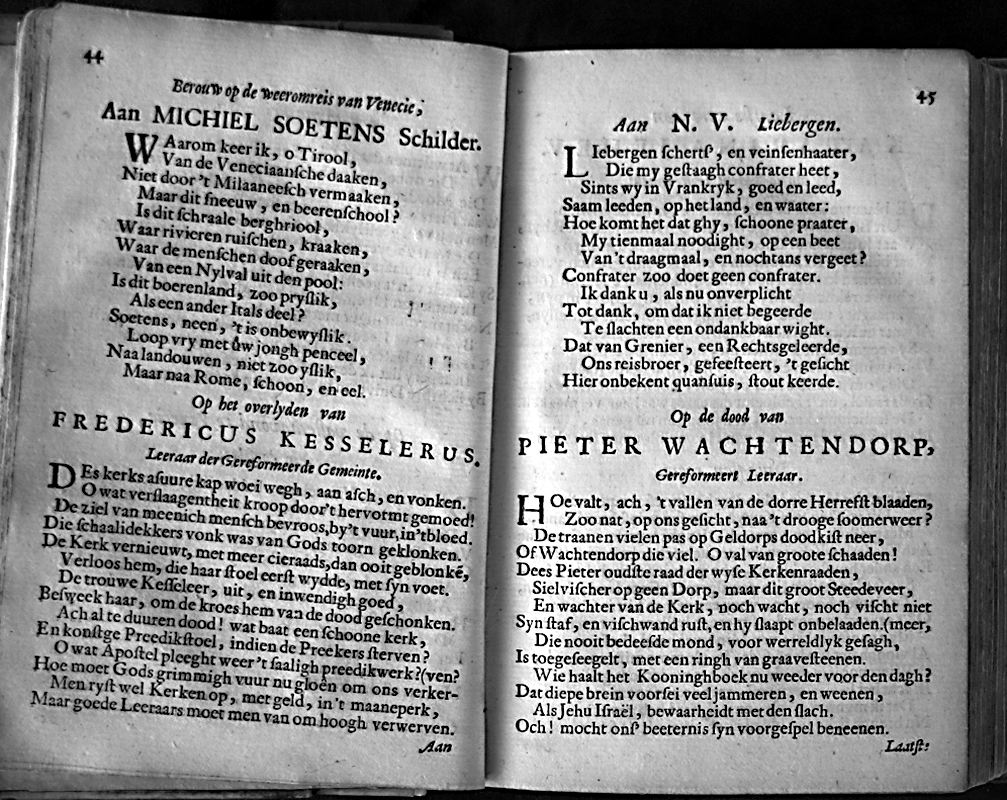 44
Berouw op de weeromreis van Venecie;
Aan MICHIEL SOETENS Schilder.
WAarom keer ik, o Tirool,
Van de Veneciaanſche daaken,
Niet door 't Milaaneeſch vermaaken,
Maar dit ſneeuw, en beerenſchool?
Is dit ſchraale berghriool,
Waar rivieren ruiſchen, kraaken,
Waar de menſchen doof geraaken,
Van een Nylval uit den pool:
Is dit boerenland, zoo pryſlik,
Als een ander Itals deel?
Soetens, neen, 't is onbewyſlik.
Loop vry met uw jongh penceel,
Naa landouwen, niet zoo yſlik,
Maar naa Rome, ſchoon, en eel.
Op het overlyden van
FREDERICUS KESSELERUS.
Leeraar der Gereformeerde Gemeinte.
DEs kerks aſuure kap woei wegh, aan aſch, en vonken.
O wat verſlaagentheit kroop door't hervormt gemoed!
De ziel van meenich menſch bevroos, by't vuur, in't bloed.
Die ſchaalidekkers vonk was van Gods toorn geklonken.
De Kerk vernieuwt, met meer cieraads, dan ooit geblonkē,
Verloos hem, die haar ſtoel eerſt wydde, met ſyn voet.
De trouwe Keſſeleer, uit, en inwendigh goed,
Beſweek haar, om de kroes hem van de dood geſchonken.
Ach al te duuren dood! wat baat een ſchoone kerk,
En konſtge Preedikſtoel, indien de Preekers ſterven?
O wat Apoſtel pleeght weer't ſaaligh preedikwerk?(ven?
Hoe moet Gods grimmigh vuur nu gloên om ons verker-
Men ryſt wel Kerken op, met geld, in't maaneperk,
Maar goede Leeraars moet men van om hoogh verwerven.
Aan
45
Aan N. V. Liebergen.
LIebergen ſchertſ, en veinſenhaater,
Die my geſtaagh confrater heet,
Sints wy in Vrankryk, goed en leed,
Saam leeden, op het land, en waater:
Hoe komt het dat ghy, ſchoone praater,
My tienmaal noodight, op een beet
Van't draagmaal, en nochtans vergeet?
Confrater zoo doet geen confrater.
Ik dank u, als nu onverplicht
Tot dank, om dat ik niet begeerde
Te ſlachten een ondankbaar wight.
Dat van Grenier, een Rechtsgeleerde,
Ons reisbroer, gefeeſteert, 't geſicht
Hier onbekent quanſuis, ſtout keerde.
Op de dood van
PIETER WACHTENDORP,
Gereformeert Leeraar.
HOe valt, ach, 't vallen van de dorre Herreſſt blaaden,
Zoo nat, op ons geſicht, naa't drooge ſoomerweer?
De traanen vielen pas op Geldorps doodkiſt neer,
Of Wachtendorp die viel. O val van groote ſchaaden!
Dees Pieter oudſte raad der wyſe Kerkenraaden,
Sielviſcher op geen Dorp, maar dit groot Steedeveer,
En wachter van de Kerk, noch wacht, noch viſcht niet
Syn ſtaf, en viſchwand ruſt, en hy ſlaapt onbelaaden.(meer,
Die nooit bedeeſde mond, voor werreldlyk geſagh,
Is toegeſeegelt, met een ringh van graaveſteenen.
Wie haalt het Kooninghboek nu weeder voor den dagh?
Dat diepe brein voorſei veel jammeren, en weenen,
Als Jehu Iſraël, bewaarheidt met den ſlach.
Och! mocht onſ beeternis ſyn voorgeſpel beneenen.
Laatſt: